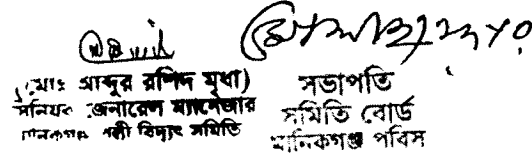 (মোঃ আব্দুর রশিদ মৃধা)
সিনিয়র জেনারেল ম্যানেজার
মানিকগঞ্জ পল্লী বিদ্যুৎ সমিতি
সভাপতি
সমিতি বোর্ড
মানিকগঞ্জ পবিস